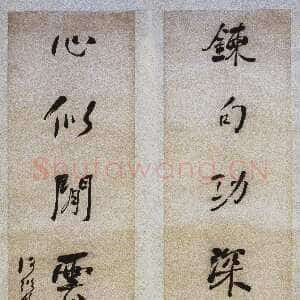 鍊句功深
心似閒雲
Shufawang.CN